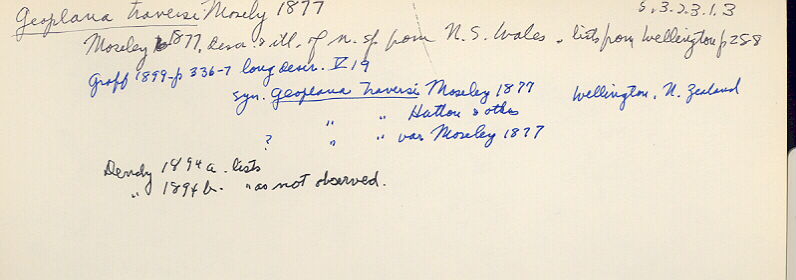 Geoplana traversi Mosely 1877 5.3.2.3.1.3
Moseley 1877, descr. & ill. of n. sp from N. S. Wales, lists from Wellington p 288
Graff 1899-p 336-7 long descr. V 19
syn. Geoplana traversi Moseley 1877 Wellington, N. Zealand
" " Hutton & othes
? " " var. Moseley 1877
Dendy 1894a. lists
" 1894b. " as not observed.